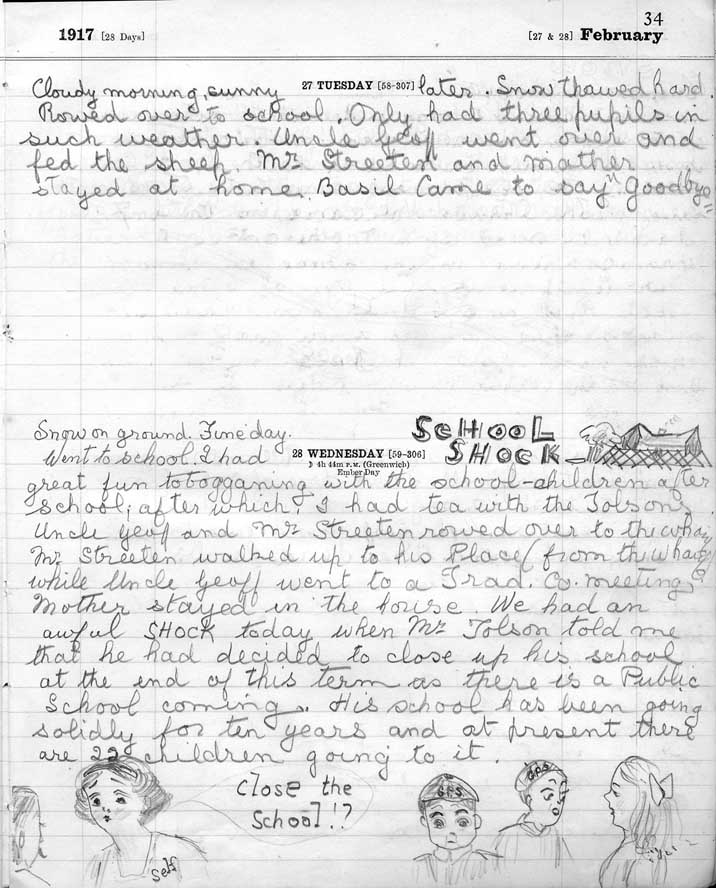 34
1917 [28 Days] [27 & 28] February
Cloudy morning, sunny 27 TUESDAY [58-307] later. Snow thawed hard.
Rowed over to school. Only had three pupils in
such weather. Uncle Geoff went over and
fed the sheep. Mr. Streeten and mother
stayed at home. Basil Came to say "Goodbye"
SCHOOL
SHOCK
Snow on ground. Fine day.
Went to school. I had 28 WEDNESDAY [59-306]
☽ 4h 44m P.M. (Greenwich)
Ember Day
great fun tobogganing with the school-children after
school; after which, I had tea with the Tolsons.
Uncle Geoff and Mr Streeten rowed over to the wharf
Mr Streeten walked up to his Place (from the wharf)
while Uncle Geoff went to a Trad. Co. meeting.
Mother stayed in the house. We had an
awful SHOCK today when Mr Tolson told me
that he had decided to close up his school
at the end of this term as there is a Public
School coming. His school has been going
solidly for ten years and at present there
are 22 children going to it.
Close the
School!?
GPS
GPS
Self